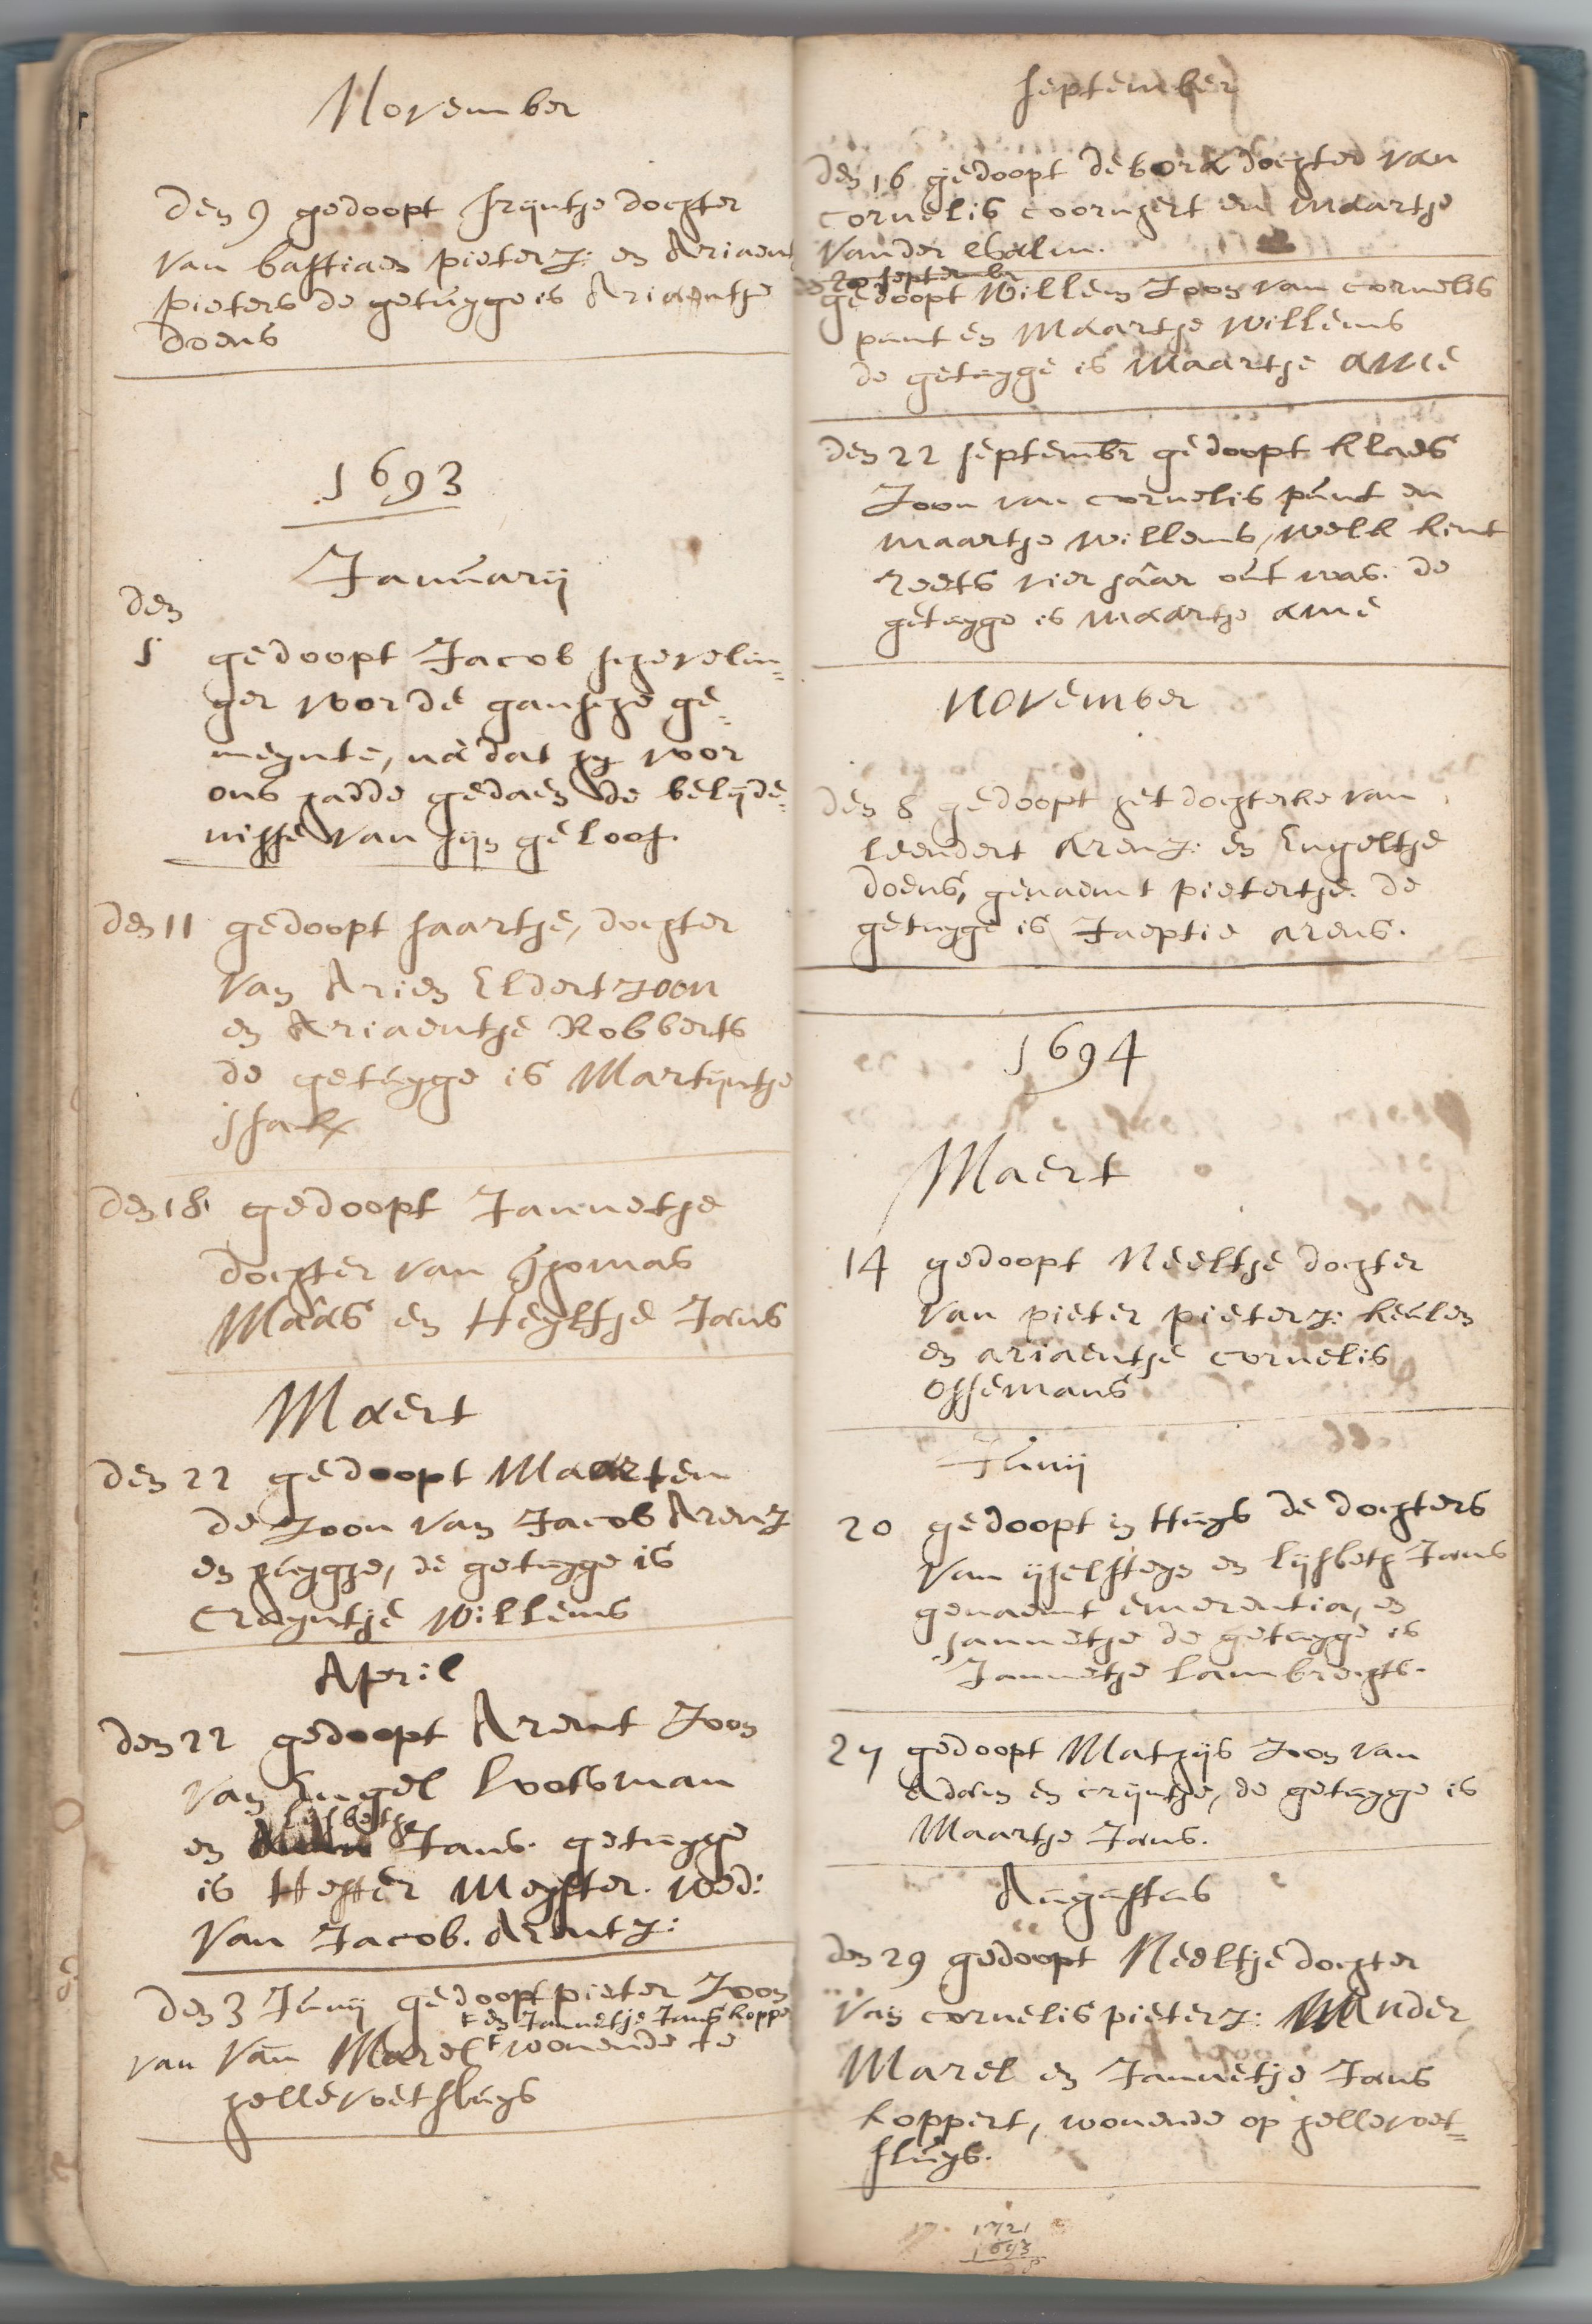 November
den 9 gedoopt Trijntje dochter
van bastiaen pieterz: en Ariaent
pieters de getuyge is Ariaentje
doens
1693
Januarij
den
5 gedoopt Jacob schevelin=
ger voor de gansche ge=
meynte, nadat hy voor
ons hadde gedaen de belijde=
nisse van sijn geloof.
den 11 gedoopt saartje, dochter
van Arien Eldertzoon
en Ariaentje Robberts
de getuyge is Martijntje
jsak
den 18 gedoopt Jannetje
dochter van Thomas
Maas en Heyltje Jans
Maert
den 22 gedoopt Maarten
de zoon van Jacob Arenz
en huygje, de getuyge is
Crayntje Willems
April
den 22 gedoopt Arent Zoon
van Engel Lootsman
lijsbethe
en Jans. getuyge
is Hester Meyster. wed:
van Jacob. Arentz:
den 3 Junij gedoopt pieter Zoon
† en Jannetje Jans koppe
van van Marel † wonende te
hellevoetsluys
september
den 16 gedoopt debora dochter van
cornelis coornhert en Maartje
vander Walm.
de 20 septembr
gedoopt Willem Zoon van cornelis
punt en Maartje Willems
de getuyge is Maartje Ame
den 22 septembr gedoopt klaes
Zoon van cornelis punt en
maartje Willems, welk kint
reets vier jaar out was. de
getuyge is Maartje Ame
November
den 8 gedoopt het dochterke van
leendert Arenz: en Engeltje
doens, genaemt pietertje. de
getuyge is Jaeptie Arens.
1694
Maert
14 gedoopt Neeltje dochter
van pieter pieterz: keulen
en ariaentje cornelis
Ossemans
Junij
20 gedoopt in Huys de dochters
van ijselsteyn en lijsbeth Jans
genaemt emerentia, en
jannetje de getuyge is
Jannetje Lambrechts.
27 gedoopt Mathijs Zoon van
Adam en crijntje, de getuyge is
Maartje Jans.
Augustus
den 29 gedoopt Neeltje dochter
van cornelis pieterz: vander
Marel en Jannetje Jans
koppert, wonende op hellevoet=
sluys.
1721
1693